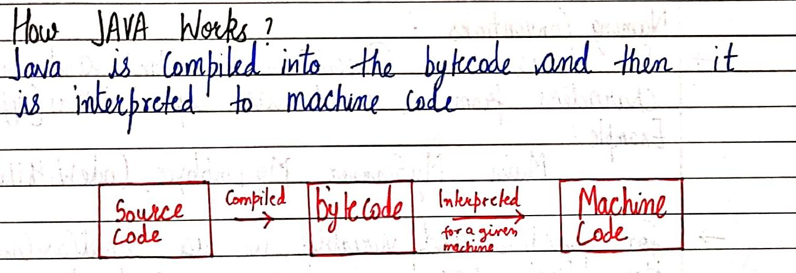 How JAVA Works?
Java is Compiled into the bytecode and then it
is interpreted to machine code
Source Code
Compiled
bytecode
Interpreted
for a given machine
Machine Code